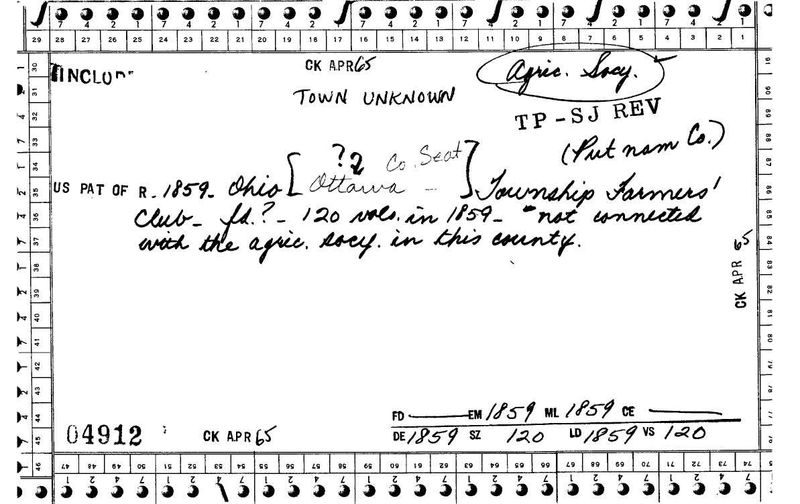 INCLUDE
CK APR 65
Agric. Socy.
TOWN UNKNOWN
TP-SJ REV
(Putnam Co.)
?
Co. Seat
US PAT OF R. 1859. Ohio [Ottawa —] Township Farmers'
Club - fd.? - 120 vols. in 1859 - "not connected
with the agric. socy. in this county.
CK APR 65
FD — EM 1859 ML 1859 CE —
DE 1859 SZ 120 LD 1859 VS 120
04912
CK APR 65